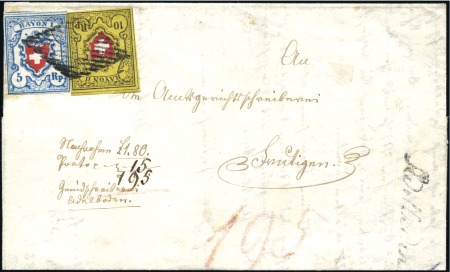 RAYON I
5 Rp
10 Rp
RAYON II
An
Amtsgerichtschreiberei
Frutigen.
Nachnahme L1.80.
Porto 15
195
Grundschreiberei
Adelboden.
195